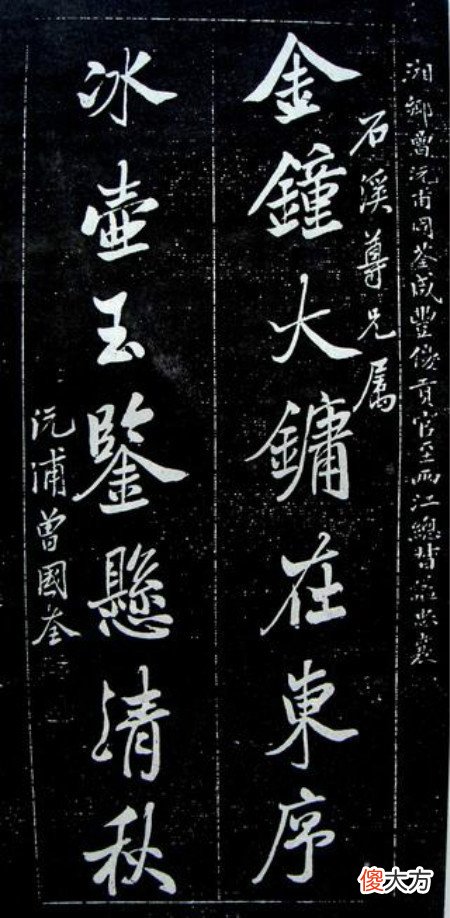 湘鄉曾沅甫國荃咸豐優貢官至兩江總督謚忠襄
石溪尊兄属
金鐘大鏞在東序
冰壺玉鑒懸清秋
沅浦曾國荃
傻大方